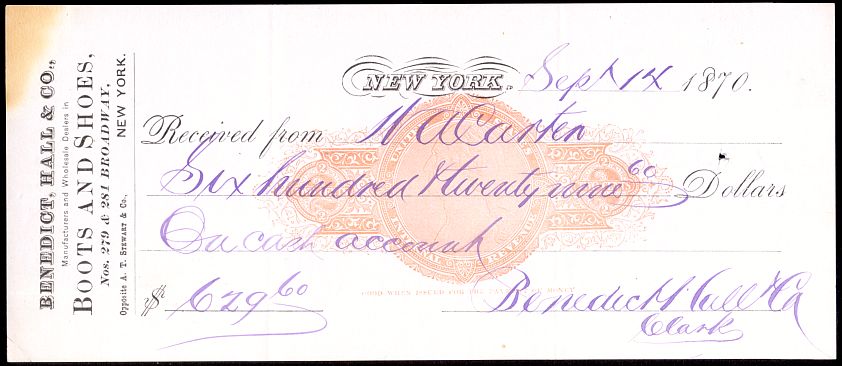 BENEDICT, HALL & CO.,
Manufacturers and Wholesale Dealers in
BOOTS AND SHOES,
Nos. 279 & 281 BROADWAY,
Opposite A. T. STEWART & Co., NEW YORK.
NEW YORK, Sept 14 1870.
Received from W A Carter
Six hundred & twenty nine 60 Dollars
On cash account
UNITED STATES
INTERNAL REVENUE
GOOD WHEN ISSUED FOR THE MONEY
$ 629 60 Benedict Hall & Co
Clark